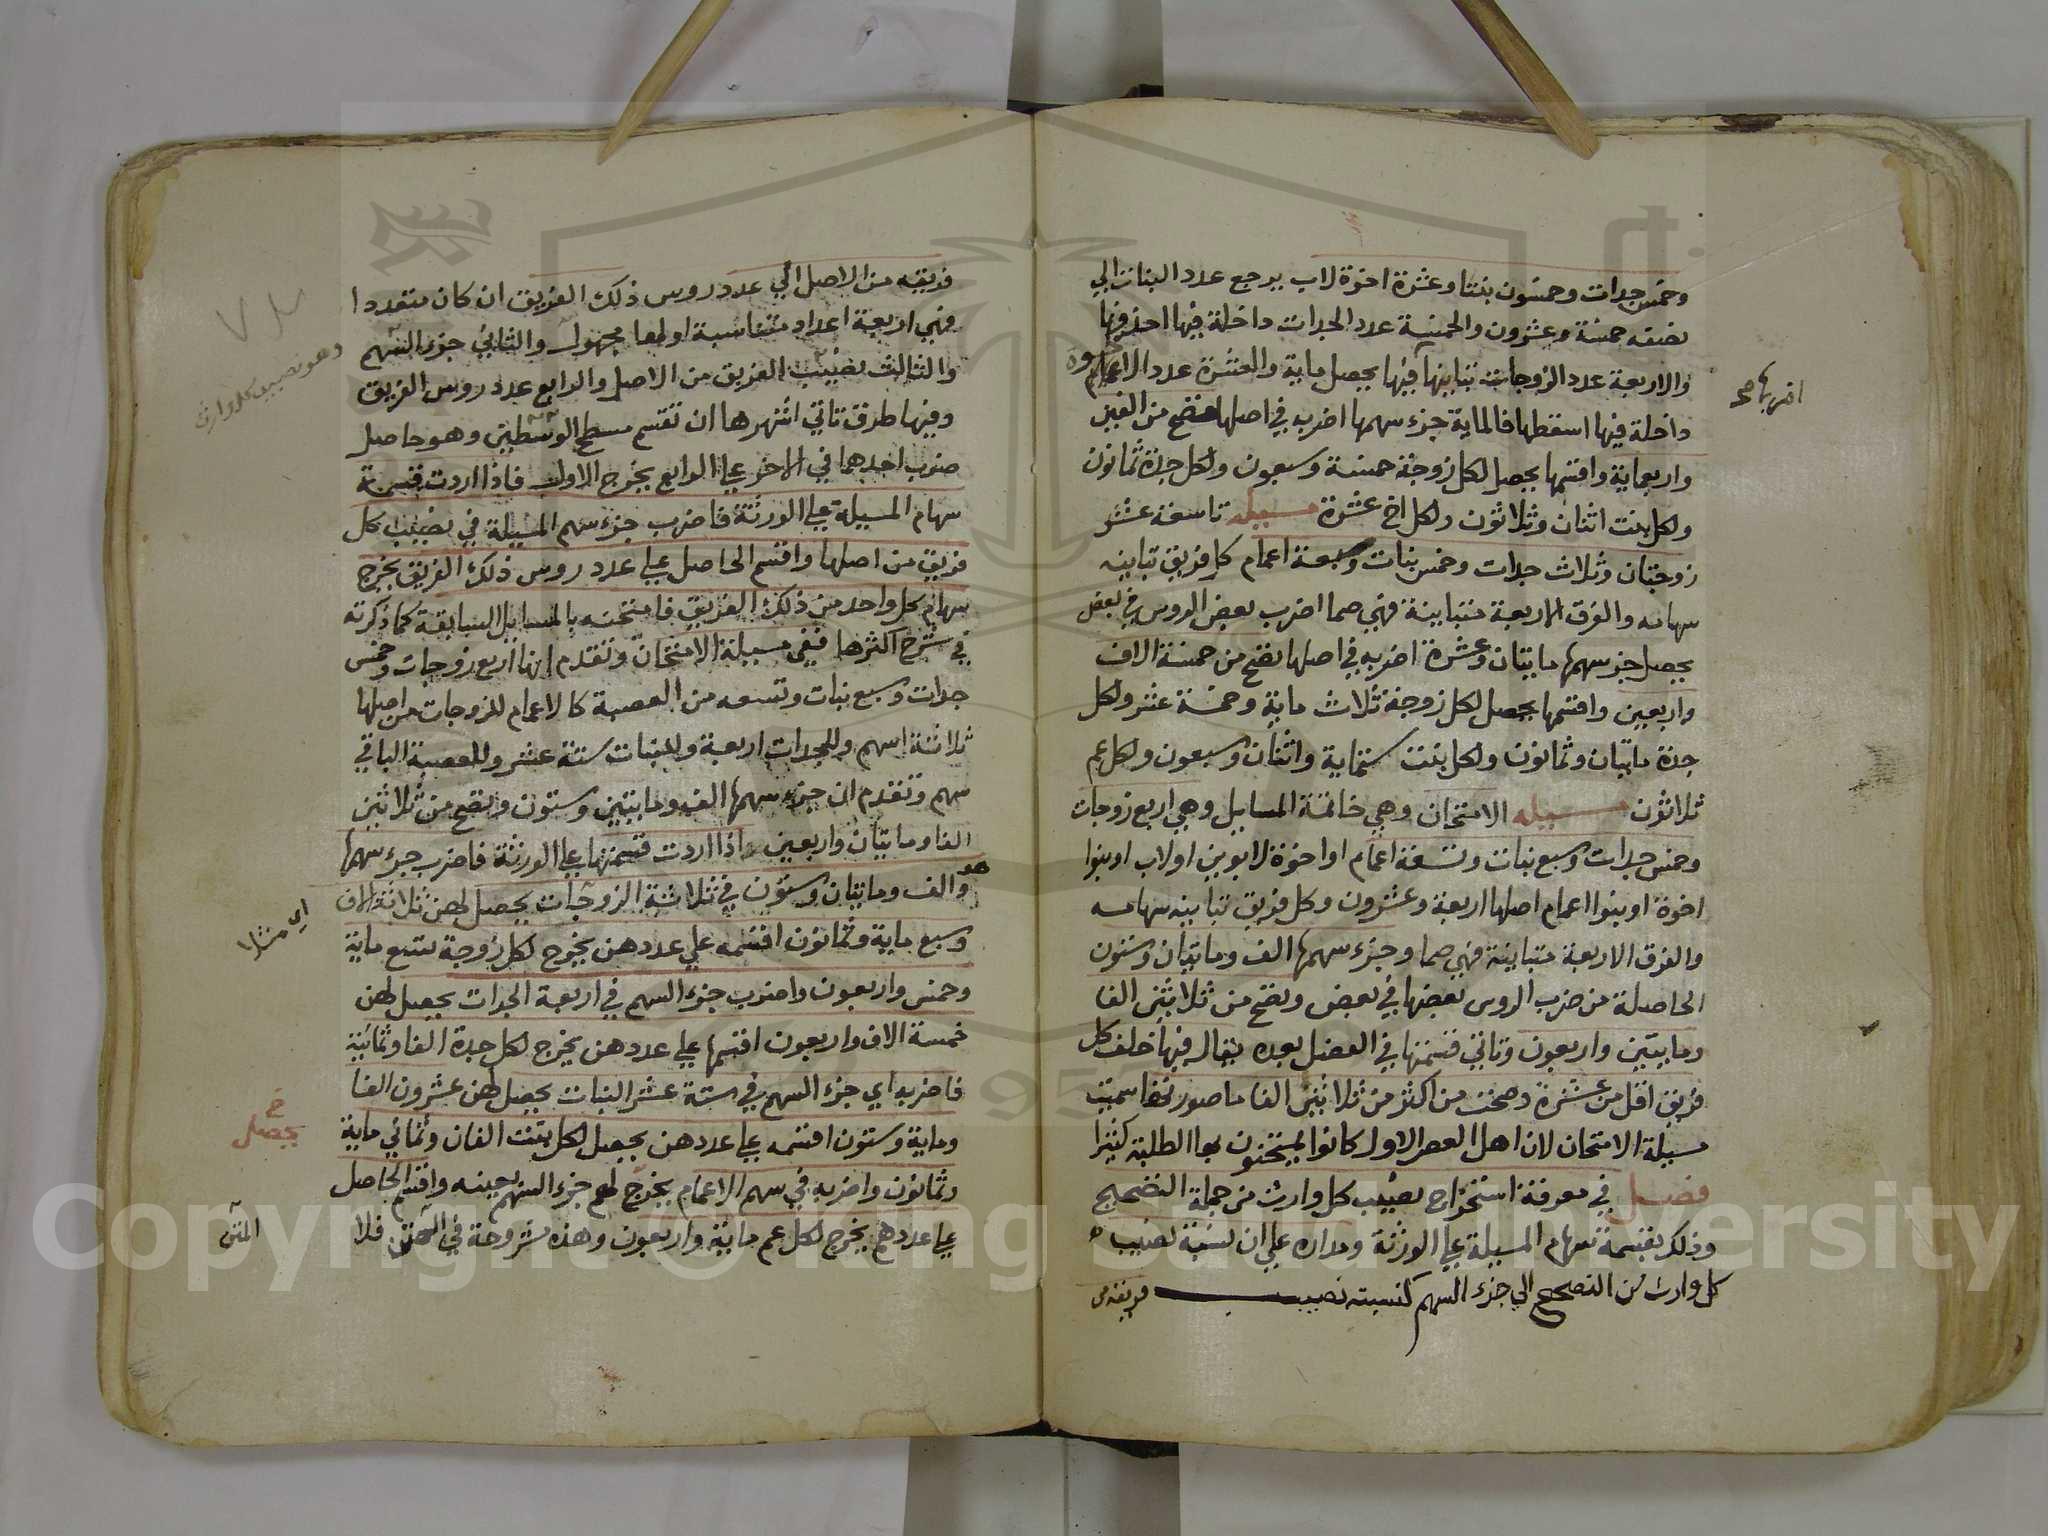 وخمس جدات وخمسون بنتا وعشرة اخوة لاب يرجع عدد البنات الي
نصفه خمسة وعشرون والخمسة عدد الجدات داخلة فيها احذفها
والاربعة عدد الزوجات تباينها فيها يحصل ماية والعشرة عدد الاخوة
اضربها صح
داخلة فيها اسقطها فالماية جزء سهمها اضربه في اصلها تصح من الفين
واربعماية واقسمها يحصل لكل زوجة خمسة وسبعون ولكل جدة ثمانون
ولكل بنت اثنان وثلاثون ولكل اخ عشرة مسيله تاسعة عشر
زوجتان وثلاث جدات وخمس بنات وسبعة اعمام كل فريق تباينه
سهامه والفرق الاربعة متباينة فهي صما اضرب بعض الروس في بعض
يحصل جزء سهمها مايتان وعشرة اضربه في اصلها تصح من خمسة الاف
واربعين واقسمها يحصل لكل زوجة ثلاث ماية وخمسة عشر ولكل
جدة مايتان وثمانون ولكل بنت ستماية واثنان وسبعون ولكل عم
ثلاثون مسيله الامتحان وهي خاتمة المسايل وهي اربع زوجات
وخمس جدات وسبع بنات وتسعة اعمام او اخوة لابوين او لاب او بنوا
اخوة او بنوا اعمام اصلها اربعة وعشرون وكل فريق تباينه سهامه
والفرق الاربعة متباينة فهي صما وجزء سهمها الف ومايتان وستون
الحاصلة من ضرب الروس بعضها في بعض وتصح من ثلاثين الفا
ومايتين واربعون وتاتي قسمتها في الفصل بعده يقال فيها خلف كل
فريق اقل من عشرة وصحت من اكثر من ثلاثين الفا ما صورتها سميت
مسيلة الامتحان لان اهل العصر الاول كانوا يمتحنون بها الطلبة كثيرا
فصل في معرفة استخراج نصيب كل وارث من جملة التصحيح
وذلك بقسمة سهام المسيلة علي الورثة ومداره علي ان نسبة نصيب
كل وارث من التصحيح الي جزء السهم كنسبته نصيب
فريقه من
فريقه من الاصل الي عدد روس ذلك الفريق ان كان متعددا
فهي اربعة اعداد متناسبة اولها مجهول والثاني جزء السهم
وهو نصيب كل وارث
والثالث نصيب الفريق من الاصل والرابع عدد روس الفريق
وفيها طرق تاتي اشهرها ان تقسم مسطح الوسطين وهو حاصل
ضرب احدهما في الاخر علي الرابع يخرج الاول فاذا اردت قسمة
سهام المسيلة علي الورثة فاضرب جزء سهم المسيلة في نصيب كل
فريق من اصلها واقسم الحاصل علي عدد روس ذلك الفريق يخرج
سهام كل واحد من ذلك الفريق فامتحنه بالمسايل السابقة كما ذكرته
في شرح اكثرها ففي مسيلة الامتحان وتقدم انها اربع زوجات وخمس
جدات وسبع بنات وتسعه من العصبة كالاعمام للزوجات من اصلها
ثلاثة اسهم وللجدات اربعة وللبنات ستة عشر وللعصبة الباقي
سهم وتقدم ان جزء سهمها الف ومايتين وستون وتصح من ثلاثين
الفا ومايتان واربعين اذا اردت قسمتها علي الورثة فاضرب جزء سهمها
هو والف ومايتان وستون في ثلاثة الزوجات يحصل لهن ثلاثة الاف
اي مثلا
وسبع ماية وثمانون اقسمه علي عددهن يخرج لكل زوجة تسع ماية
وخمس واربعون واضرب جزء السهم في اربعة الجدات يحصل لهن
خمسة الاف واربعون اقسمها علي عددهن يخرج لكل جدة الفا وثمانية
فاضربه اي جزء السهم في ستة عشر البنات يحصل لهن عشرون الفا
وماية وستون اقسمه علي عددهن يحصل لكل بنت الفان وثماني ماية
خ
يحصل
وثمانون واضربه في سهم الاعمام يخرج لهم جزء السهم بعينه واقسم الحاصل
علي عددهم يخرج لكل عم ماية واربعون وهذه مشروحة في المتن فلا
المتن
Copyright © King Saud University